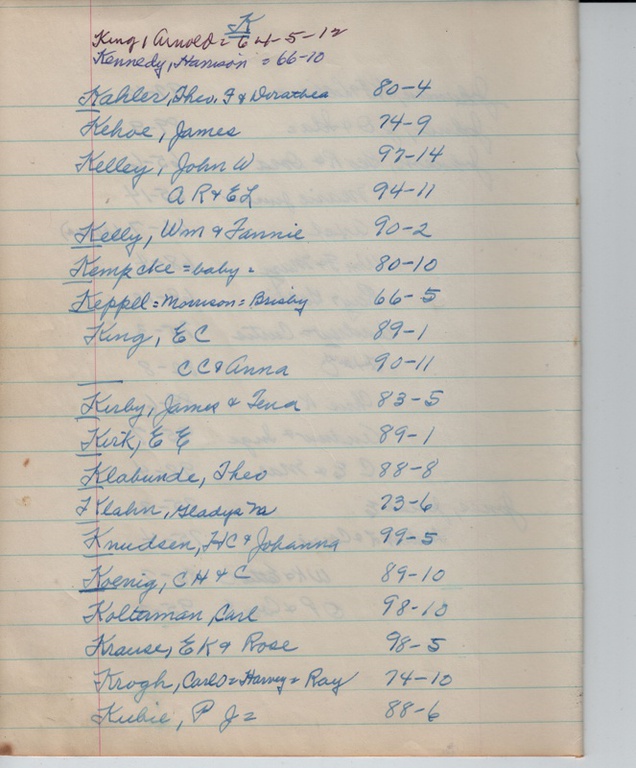 K
King, Arnold = 64-5-12
Kennedy, Harrison = 66-10
Kahler, Theo. F & Dorathea 80-4
Kehoe, James 74-9
Kelley, John W 97-14
A R & E L 94-11
Kelly, Wm & Fannie 90-2
Kempcke = baby = 80-10
Keppel = Morrison = Brisby 66-5
King, E C 89-1
C C & Anna 90-11
Kirby, James & Tena 83-5
Kirk, E E 89-1
Klabunde, Theo 88-8
Klahn, Gladys M 73-6
Knudsen, H C & Johanna 99-5
Koenig, C H & C 89-10
Kolterman, Carl 98-10
Krause, E K & Rose 98-5
Krogh, Carlo = Harvey = Ray 74-10
Kubie, P J = 88-6